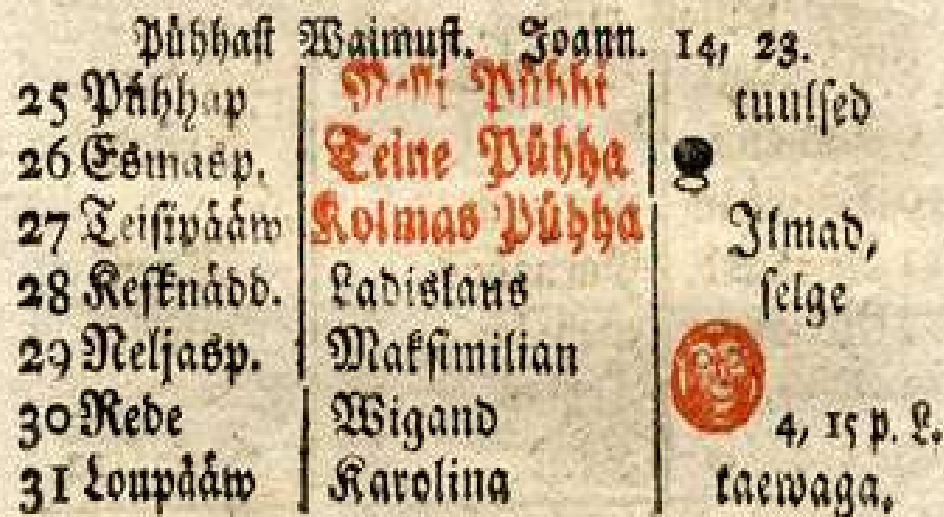 Pühhast Waimust. Joann. 14, 23.
25 Pühhap Pühhi tuulsed
26 Esmasp. Teine Pühha
27 Teisipääw Kolmas Pühha Ilmad,
28 Kesknädd. Ladislaus selge
29 Neljasp. Maksimilian
30 Rede Wigand 4, 15 p. L.
31 Loupääw Karolina taewaga.